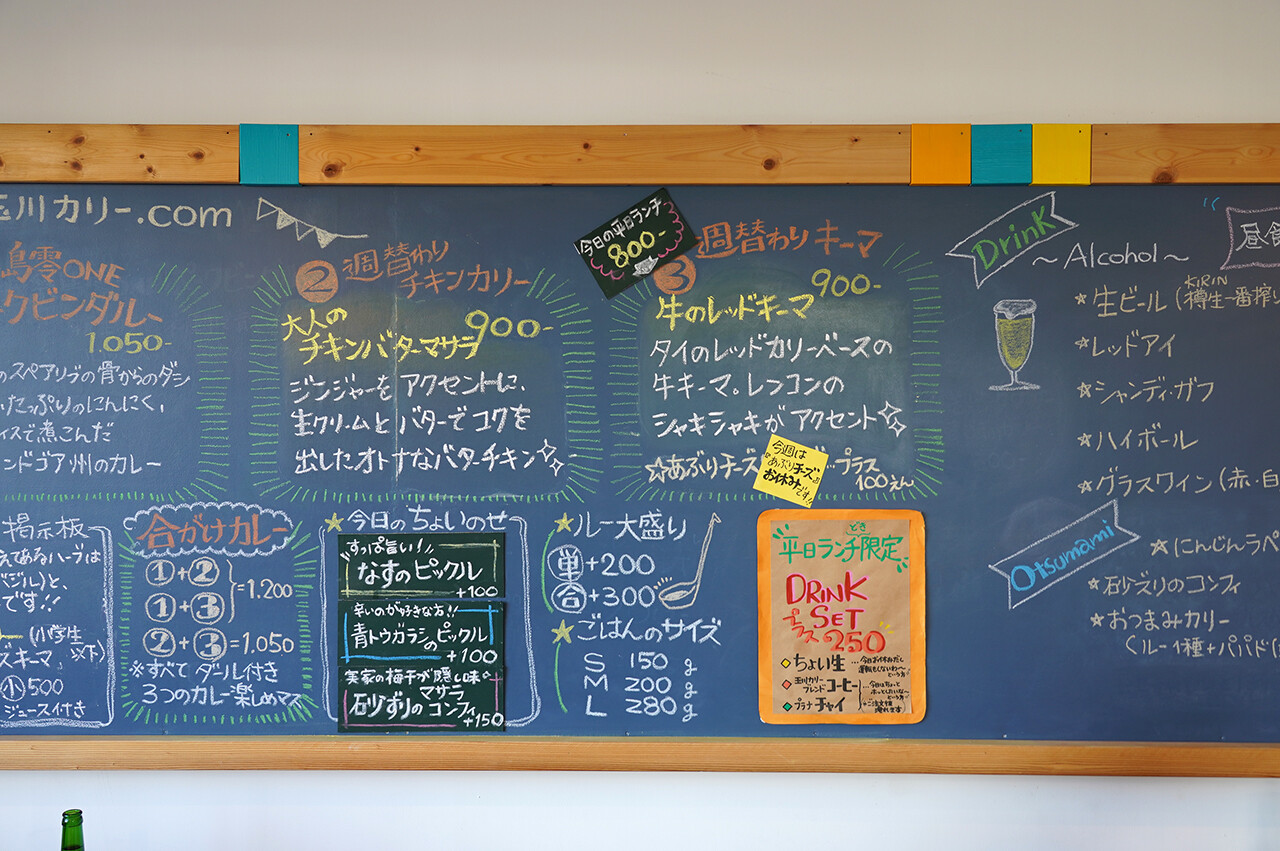 玉川カリー.com
島零ONE
クビンダルー
1.050-
のスペアリブの骨からのダシ
たっぷりのにんにく、
イスで煮こんだ
ンドゴア州のカレー
② 週替わり
チキンカリー
大人の
チキンバターマサラ
900-
ジンジャーを アクセントに、
生クリームと バターで コクを
出したオトナなバターチキン
今日の平日ランチ
800-
③ 週替わりキーマ
900-
牛のレッドキーマ
タイのレッドカリーベースの
牛キーマ。レンコンの
シャキシャキが アクセント
☆あぶりチーズ
…プラス
100えん
今週は
あぶりチーズ
お休みです!!
Drink
~Alcohol~
昼食
KIRIN
★生ビール (樽生一番搾り
★レッドアイ
★シャンディ・ガフ
★ハイボール
★グラスワイン(赤・白
Otsumami
★にんじんラペ
★砂ずりのコンフィ
★おつまみカリー
(ルー1種+パパド
掲示板
えてあるハーブは
バジル)と、
です!!
(小学生
以下)
ズキーマ
小 500
ジュース付き
合がけカレー
①+②
①+③
=1.200
②+③=1.050
※すべて ダール付き
3つのカレー楽しめマス
★今日のちょいのせ
すっぱ旨い!
なすのピックル
+100
辛いのが好きな方!!
青トウガラシのピックル
+100
実家の梅干が隠し味の
マサラ
砂ずりのコンフィ
+150
★ルー大盛り
単 +200
合 +300
★ごはんのサイズ
S 150g
M 200g
L 280g
どき
平日ランチ限定
DRINK
SET
プラス 250
ちょい生
…今日お休みだし
運転もしないわ〜
という方
玉川カリー
ブレンド コーヒー
プラナ チャイ
…今日はちょっと
ホッとしたいな〜
という方
※ご注文後
淹れます